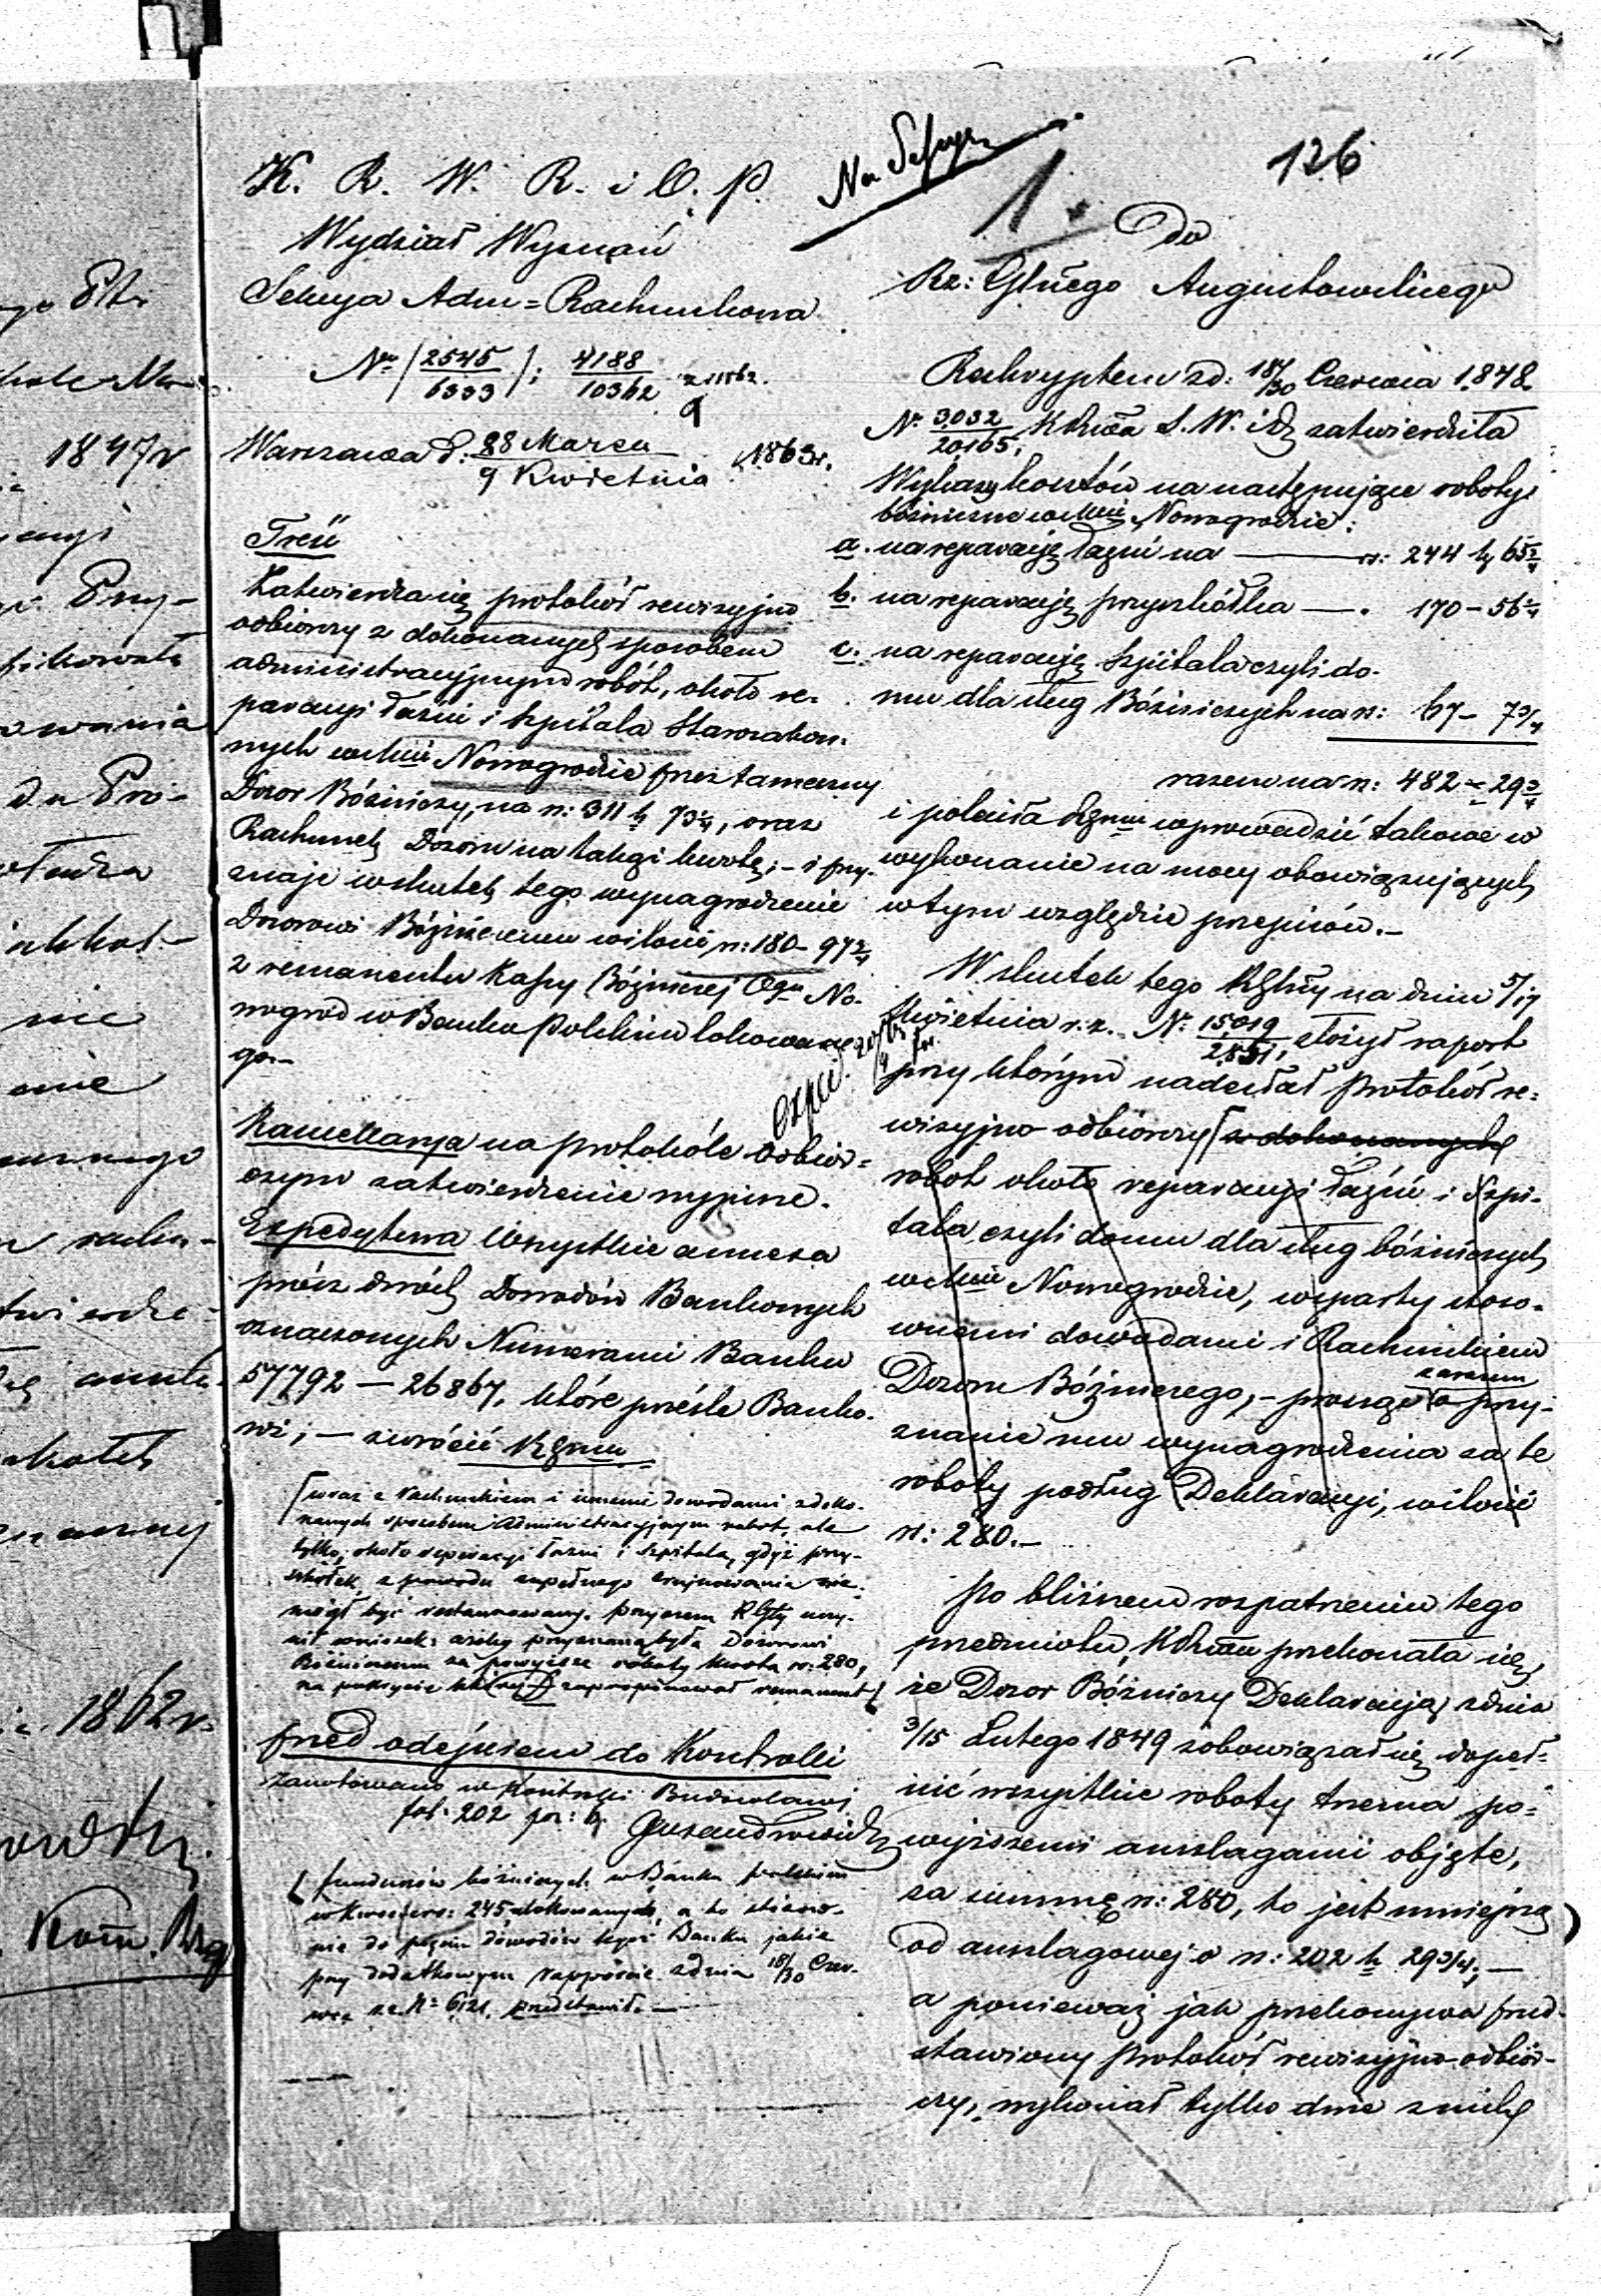 126
1.
K. R. W. R. i O. P.
Wydział Wyznań
Sekcya Adm = Rachunkowa
No (2545/6333); 4188/10362 z 1862.
Warszawa d. 28 Marca / 9 Kwietnia 1863 r.
Treść
Zatwierdza się protokół rewizyjno
odbiorczy z dokonanych sposobem
administracyjnym robót, około re-
paracyi łaźni i szpitala Starozakon-
nych w mieście Nowogrodzie przez tameczny
Dozor Bóżniczy, na rs: 311 k 73¼, oraz
Rachunek Dozoru na takąż kwotę; – i przy-
znaje wskutek tego wynagrodzenie
Dozorowi Bóżniczemu w ilości rs: 180 – 97
z remanentu Kassy Bóżniczej Ogu No-
wogród w Banku Polskim lokowane-
go. –
Kancellarya na protokóle odbior-
czym zatwierdzenie wypisze.
Expedytura Wszystkie annexa
prócz dwóch Dowodów Bankowych
oznaczonych Numerami Banku
57792 – 26867, które prześle Banko-
wi; – zwrócić Rządowi
[wraz z Rachunkiem i innemi dowodami z doko-
nanych sposobem Administracyjnym robót, ale
tylko, około reparacyi łaźni i Szpitala, gdyż przy-
szkółek, z powodu zupełnego zrujnowania nie
mógł być restaurowany. przyczem R Głty uczy-
nił wniosek: ażeby przyznaną była Dozorowi
Bóżniczemu za powyższe roboty kwota rs: 280,
na pokrycie której zaproponował remanent
przed odejściem do Kontrolli
Zanotowano w Kontrolli Budowlanej
fol. 202 poz: 6.
funduszów bóżniczych w Banku polskim
w kwocie rs: 245 ulokowanych, a to stosow-
nie do dowodów tegoż Banku jakie
przy dodatkowym rapporcie z dnia 18/30 Czer-
wca za No 6121. przedstawił. –
Do
Rz: Głneго Augustowskiego
Reskryptem z d: 18/30 Czerwca 1848
No 3032/20165, K Rząa S. W. i D. zatwierdziła
Wykazy kosztów na następujące roboty
bóżnicze w mieście Nowogrodzie:
a. na reparacyę łaźni na — rs: 244 k 65
b. na reparacyę przyszkółka — . 170 – 56
c. na reparacyę Szpitala czyli do-
mu dla sług Bóżniczych na rs: 67 – 7¾
razem na rs: 482 k 29¾
i poleciła Rządowi wprowadzić takowe w
wykonanie na mocy obowiązujących
w tym względzie przepisów. –
W skutek tego R Głny na dniu 5/17
Kwietnia r. z. No 15019/2851, złożył raport
przy którym nadesłał protokół re-
wizyjno odbiorczy [z dokonanych
robót około reparacyi łaźni i Szpi-
tala czyli domu dla sług bóżniczych
w mieście Nowogrodzie, wsparty stoso-
wnemi dowodami i Rachunkiem
Dozoru Bóżniczego, – prosząc zarazem o przy-
znanie mu wynagrodzenia za te
roboty podług Deklaracyi, w ilości
rs: 280. –
Po bliższem rozpatrzeniu tego
przedmiotu, K Rząa przekonała się,
że Dozor Bóżniczy Deklaracyą z dnia
3/15 Lutego 1849 zobowiązał się dopeł-
nić wszystkie roboty trzema po-
wyższemi anszlagami objęte,
za summę rs: 280, to jest mniejszą
od anszlagowej o rs: 202 k 29¾; –
a ponieważ jak przekonywa przed-
stawiony Protokół rewizyjno-odbior-
czy, wykonał tylko dwie z nich